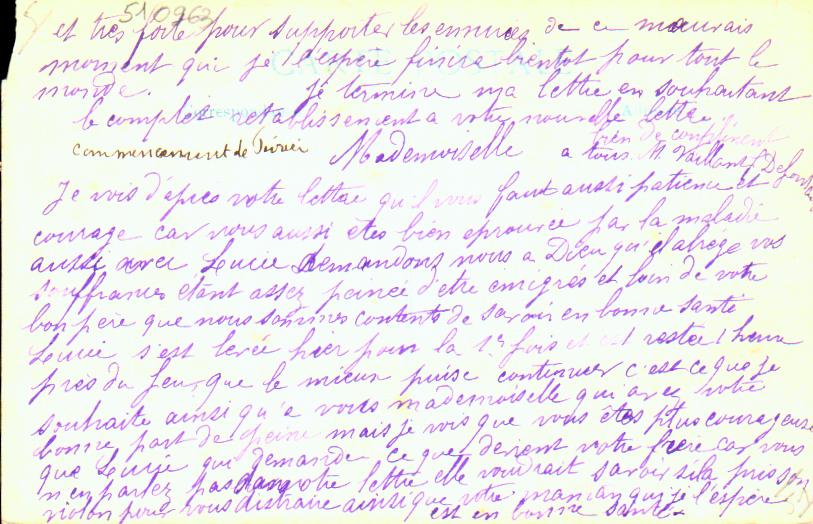 510962
et très forte pour supporter les ennuies de ce mauvais
moment qui je l'espère finira bientot pour tout le
monde. je termine ma lettre en souhaitant
le complet retablissement a votre nouvelle lettre
bien de compliment
commencement de Mademoiselle a tous. M. Vaillant
Je vois d'apres votre lettre qu'il vous faut aussi patience et
courage car vous aussi etes bien eprouvée par la maladie
aussi avec Lucie Demandons nous a Dieu qu'il abrége vos
souffrances étant assez peinée d'etre emigrés et loin de votre
bon père que nous sommes contents de savoir en bonne santé
Lucie s'est levée hier pour la 1re fois et est restée 1 heure
près du feu que le mieux puise continuer c'est ce que je
souhaite ainsi qu'a vous mademoiselle qui avez votre
bonne part de peine mais je vois que vous étes plus courageuse
que Lucie qui demande ce que devient votre frère car vous
n'en parlez pas dans votre lettre elle voudrait savoir si a pris son
violon pour vous distraire ainsi que votre maman qui je l'espère
est en bonne santé